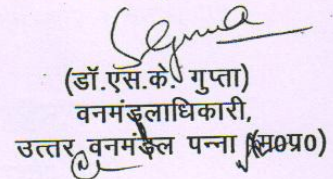 (डॉ.एस.के. गुप्ता)
वनमंडलाधिकारी,
उत्तर वनमंडल पन्ना (म0प्र0)